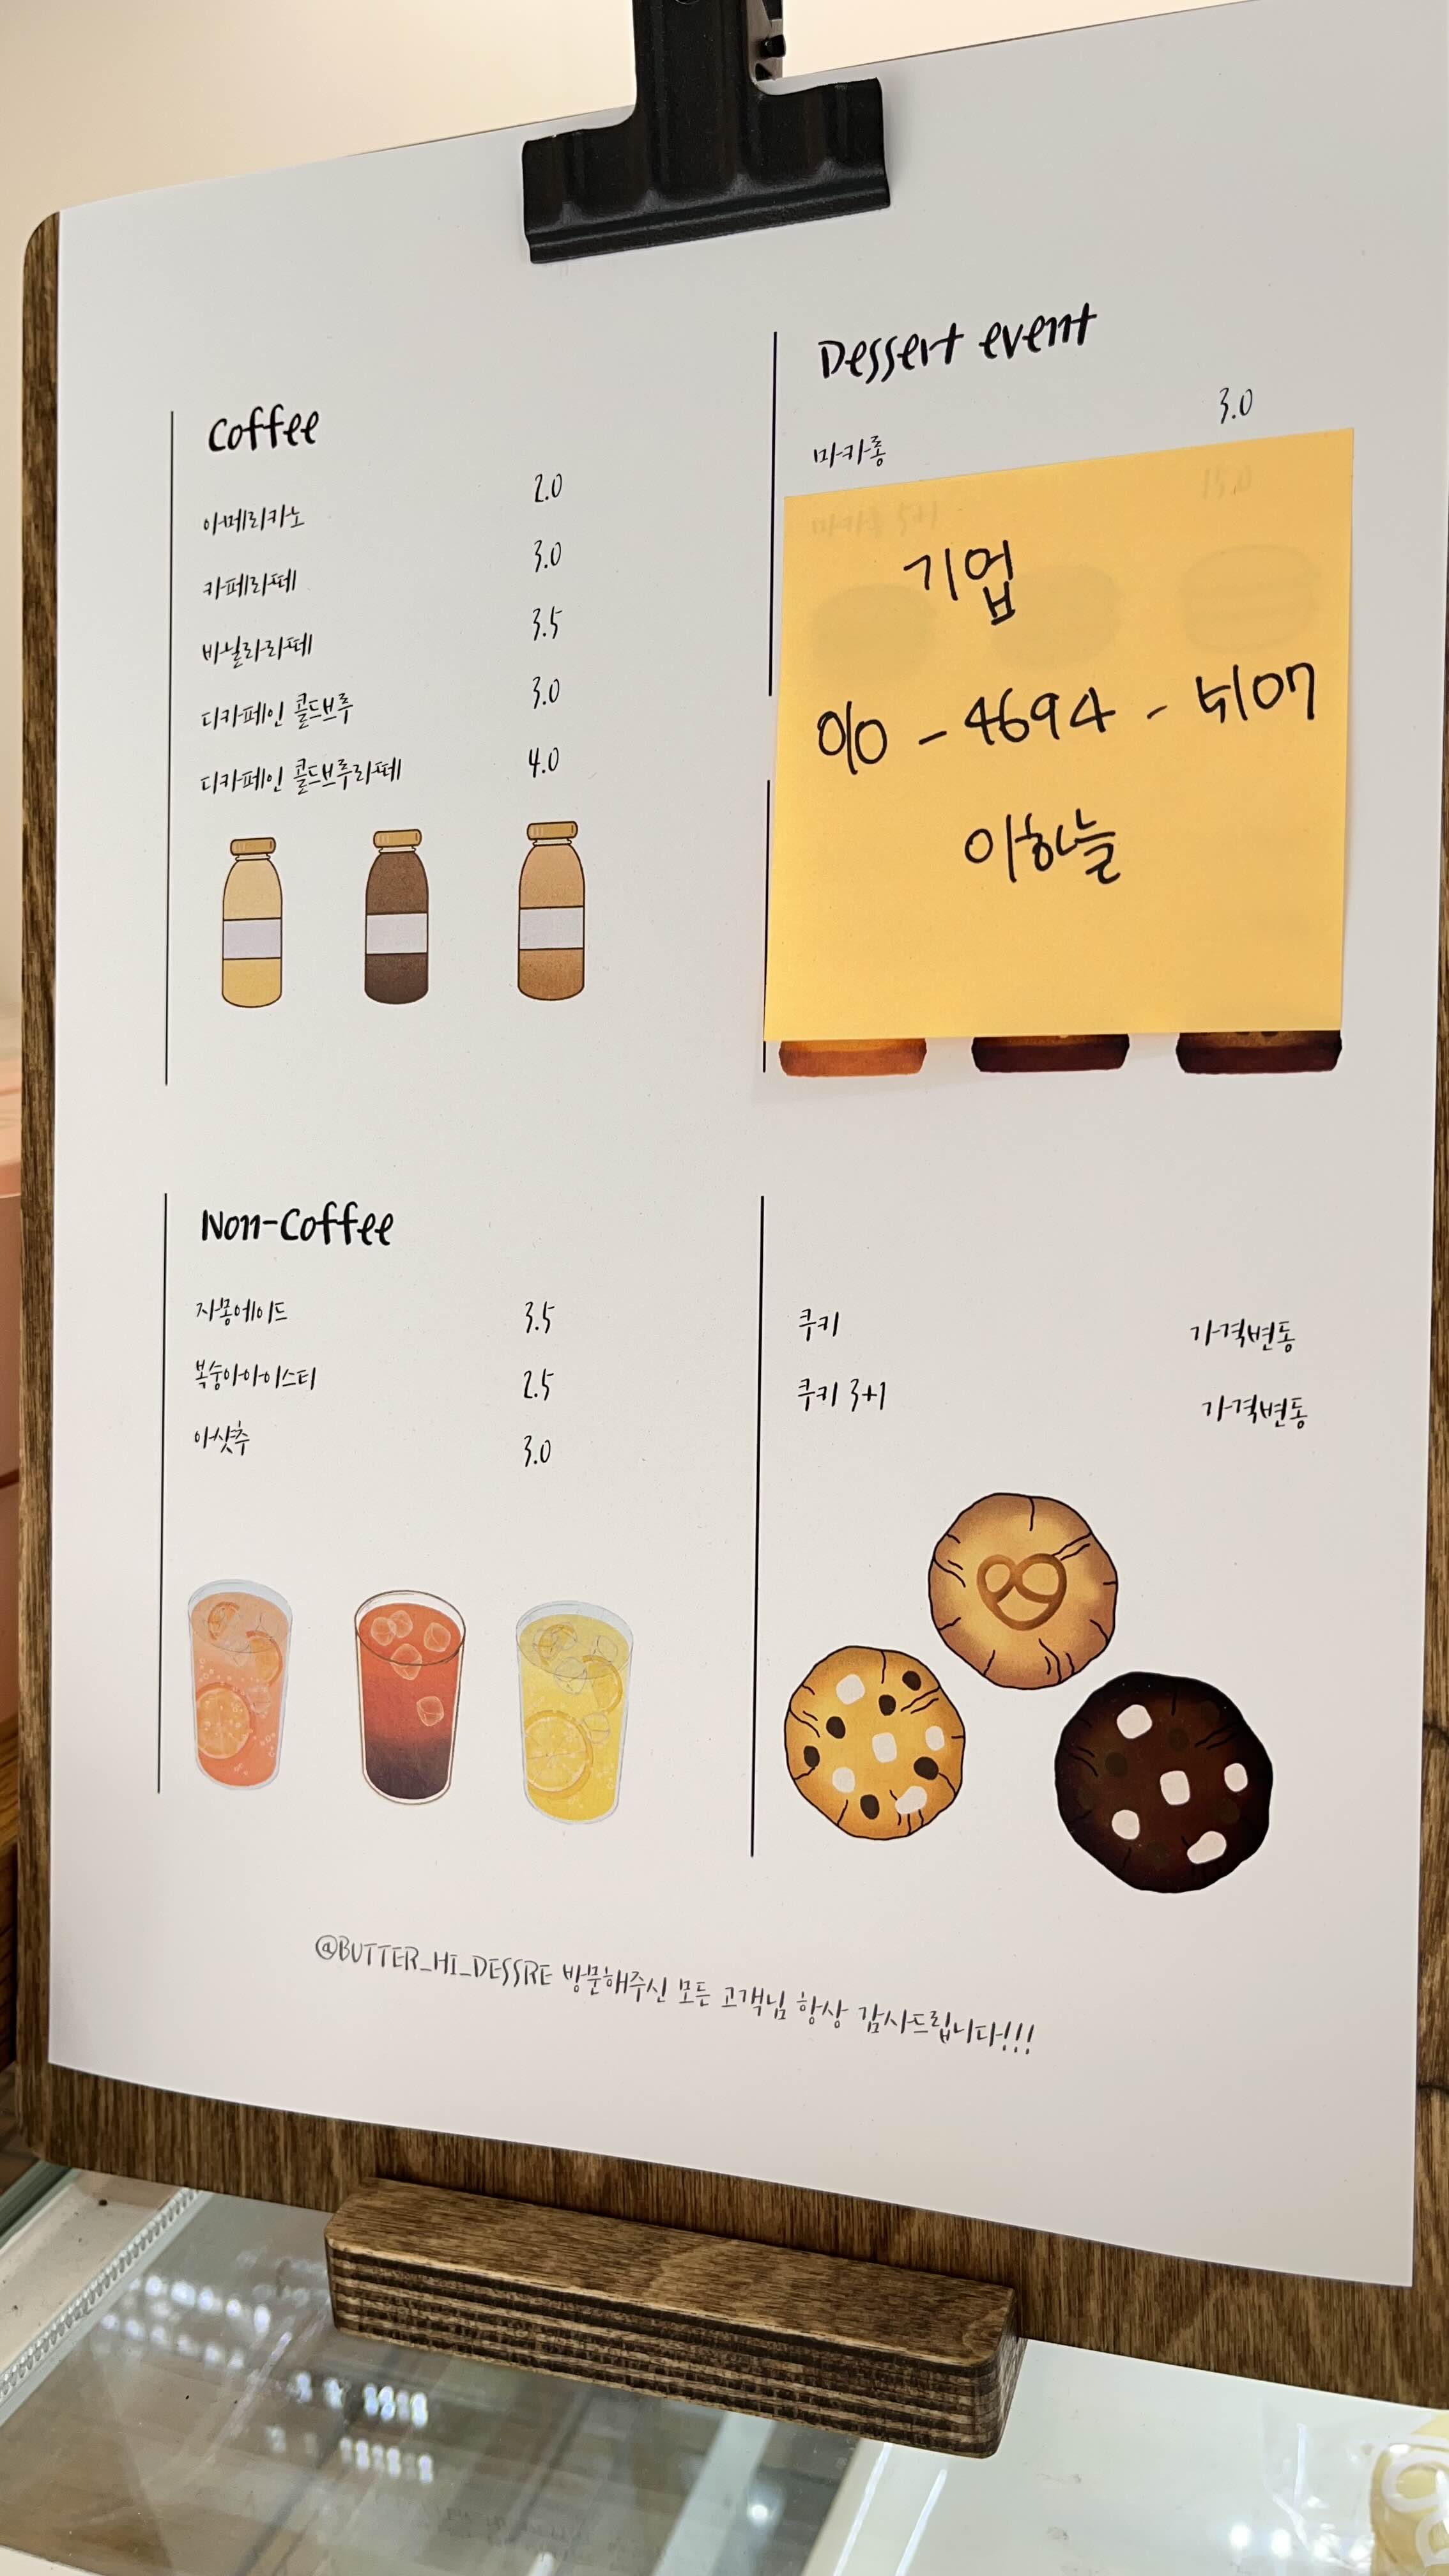 Coffee
아메리카노 2.0
카페라떼 3.0
바닐라라떼 3.5
디카페인 콜드브루 3.0
디카페인 콜드브루라떼 4.0
Dessert event
마카롱 3.0
마카롱 5+1
기업
010-4694-5107
이하늘
Non-Coffee
자몽에이드 3.5
복숭아아이스티 2.5
아샷추 3.0
쿠키 가격변동
쿠키 3+1 가격변동
@BUTTER_HI_DESSRE 방문해주신 모든 고객님 항상 감사드립니다!!!